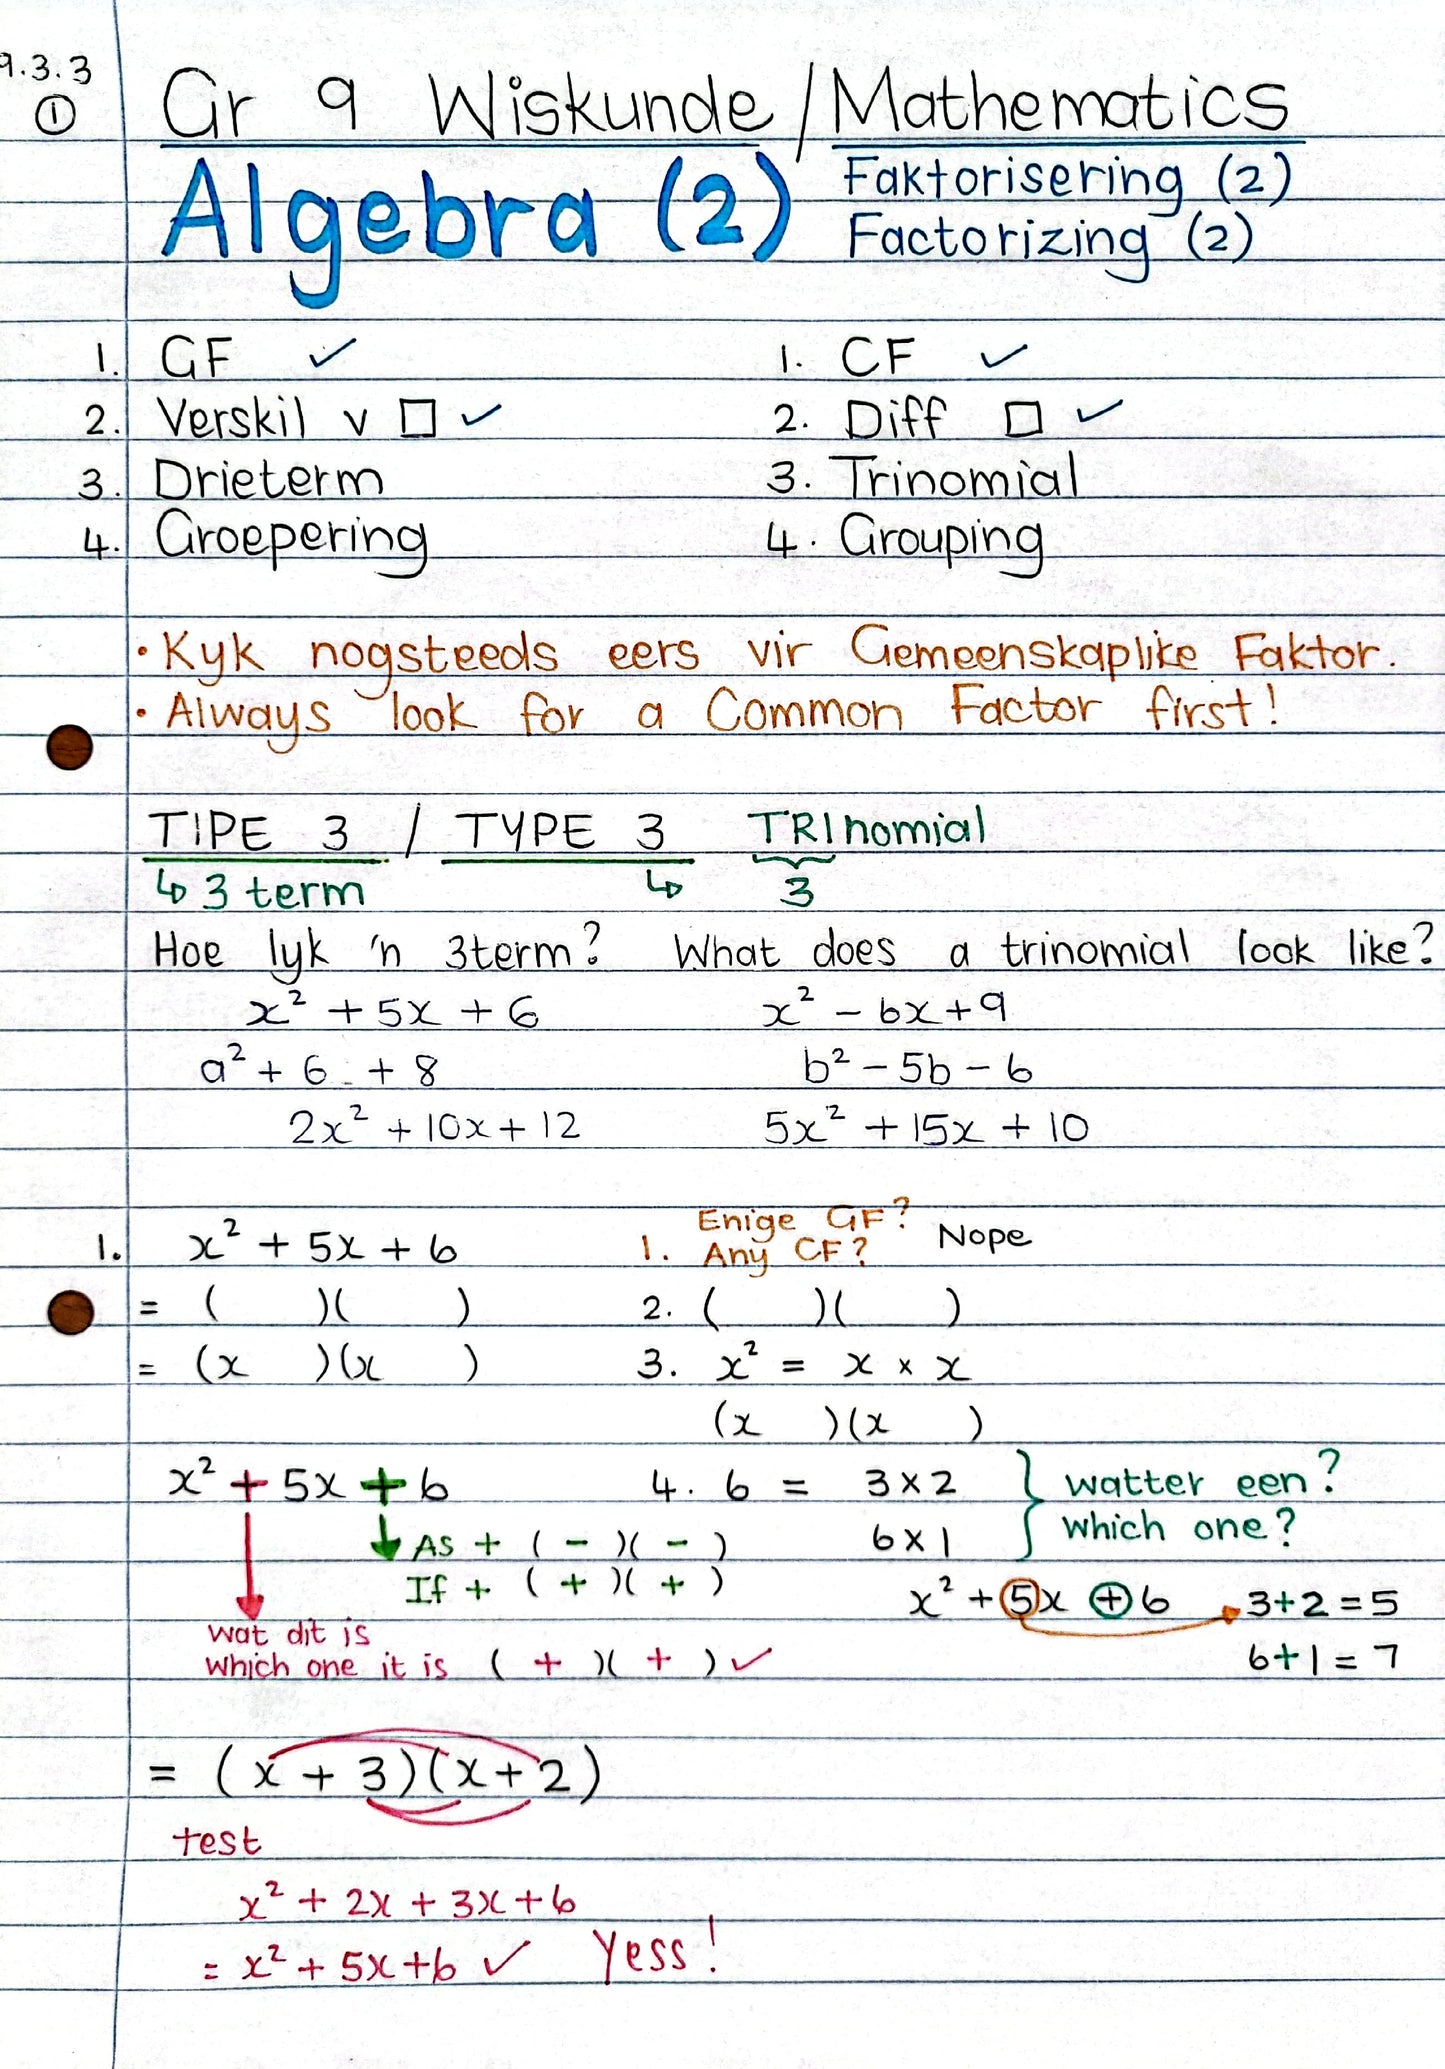 9.3.3
①
Gr 9 Wiskunde / Mathematics
Algebra (2)
Faktorisering (2)
Factorizing (2)
1. GF ✓
1. CF ✓
2. Verskil v □ ✓
2. Diff □ ✓
3. Drieterm
3. Trinomial
4. Groepering
4. Grouping
• Kyk nogsteeds eers vir Gemeenskaplike Faktor.
• Always look for a Common Factor first!
TIPE 3 / TYPE 3 TRInomial
↳ 3 term ↳ 3
Hoe lyk 'n 3term? What does a trinomial look like?
x² + 5x + 6 x² - 6x + 9
a² + 6 + 8 b² - 5b - 6
2x² + 10x + 12 5x² + 15x + 10
1. x² + 5x + 6
= ( )( )
= (x )(x )
1. Enige GF?
Any CF? Nope
2. ( )( )
3. x² = x × x
(x )(x )
x² + 5x + 6
As + ( - )( - )
If + ( + )( + )
wat dit is
which one it is ( + )( + ) ✓
4. 6 = 3 × 2
6 × 1
watter een?
which one?
x² + 5x + 6 3+2 = 5
6+1 = 7
= (x + 3)(x + 2)
test
x² + 2x + 3x + 6
= x² + 5x + 6 ✓ Yess!